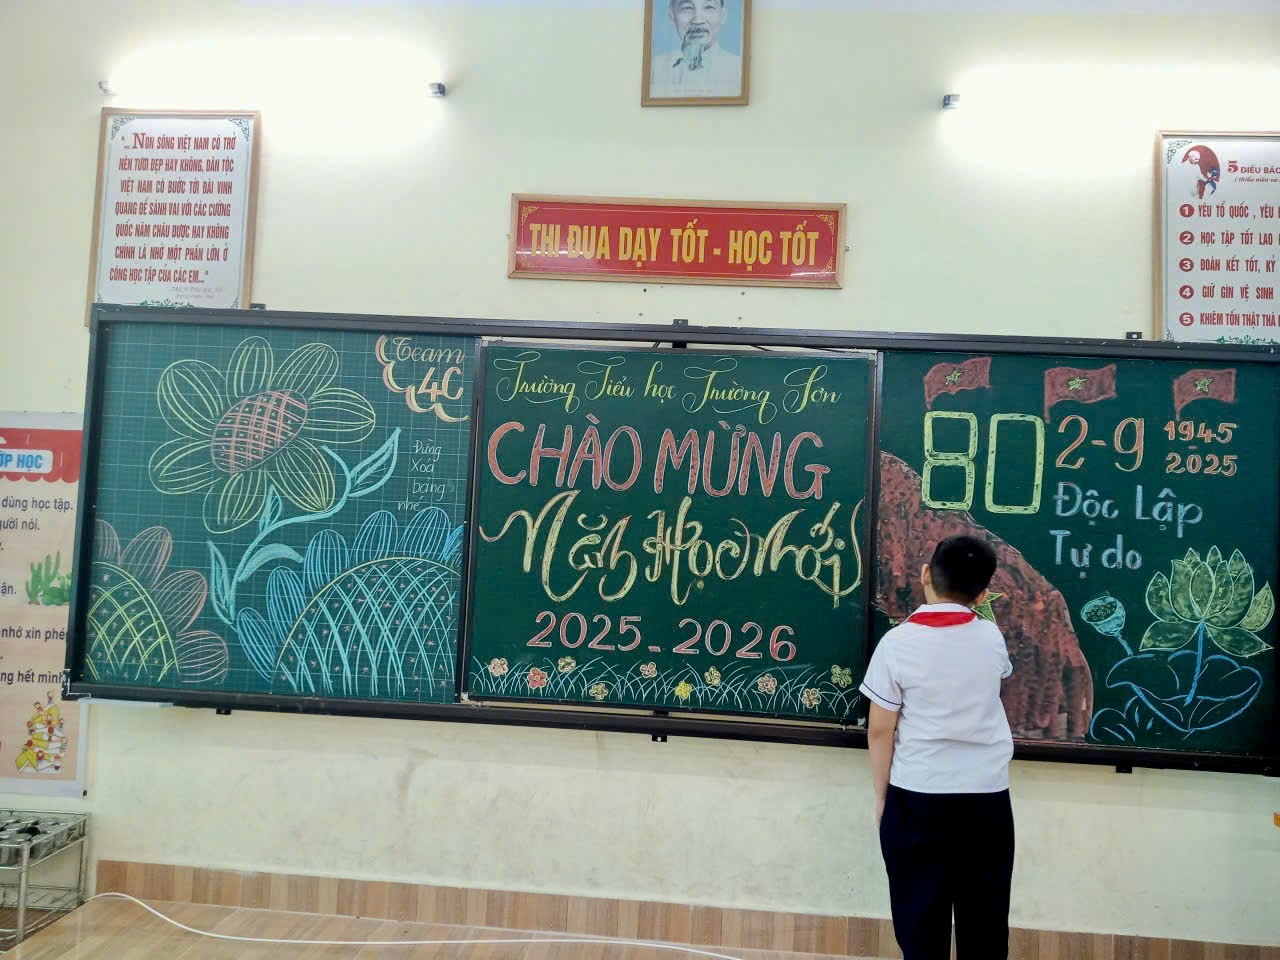 "... NON SÔNG VIỆT NAM CÓ TRỞ
NÊN TƯƠI ĐẸP HAY KHÔNG, DÂN TỘC
VIỆT NAM CÓ BƯỚC TỚI ĐÀI VINH
QUANG ĐỂ SÁNH VAI VỚI CÁC CƯỜNG
QUỐC NĂM CHÂU ĐƯỢC HAY KHÔNG
CHÍNH LÀ NHỜ MỘT PHẦN LỚN Ở
CÔNG HỌC TẬP CỦA CÁC EM..."
THI ĐUA DẠY TỐT - HỌC TỐT
5 ĐIỀU BÁC
( thiếu niên và
1 YÊU TỔ QUỐC , YÊU
2 HỌC TẬP TỐT LAO
3 ĐOÀN KẾT TỐT, KỶ
4 GIỮ GÌN VỆ SINH
5 KHIÊM TỐN THẬT THÀ
ỚP HỌC
dùng học tập.
gười nói.
ận.
nhớ xin phé
ng hết mình
Team
4C
Đừng
Xoá
bảng
nhé
Trường Tiểu học Trường Sơn
CHÀO MỪNG
Năm Học Mới
2025 - 2026
80 2-9 1945
2025
Độc Lập
Tự do